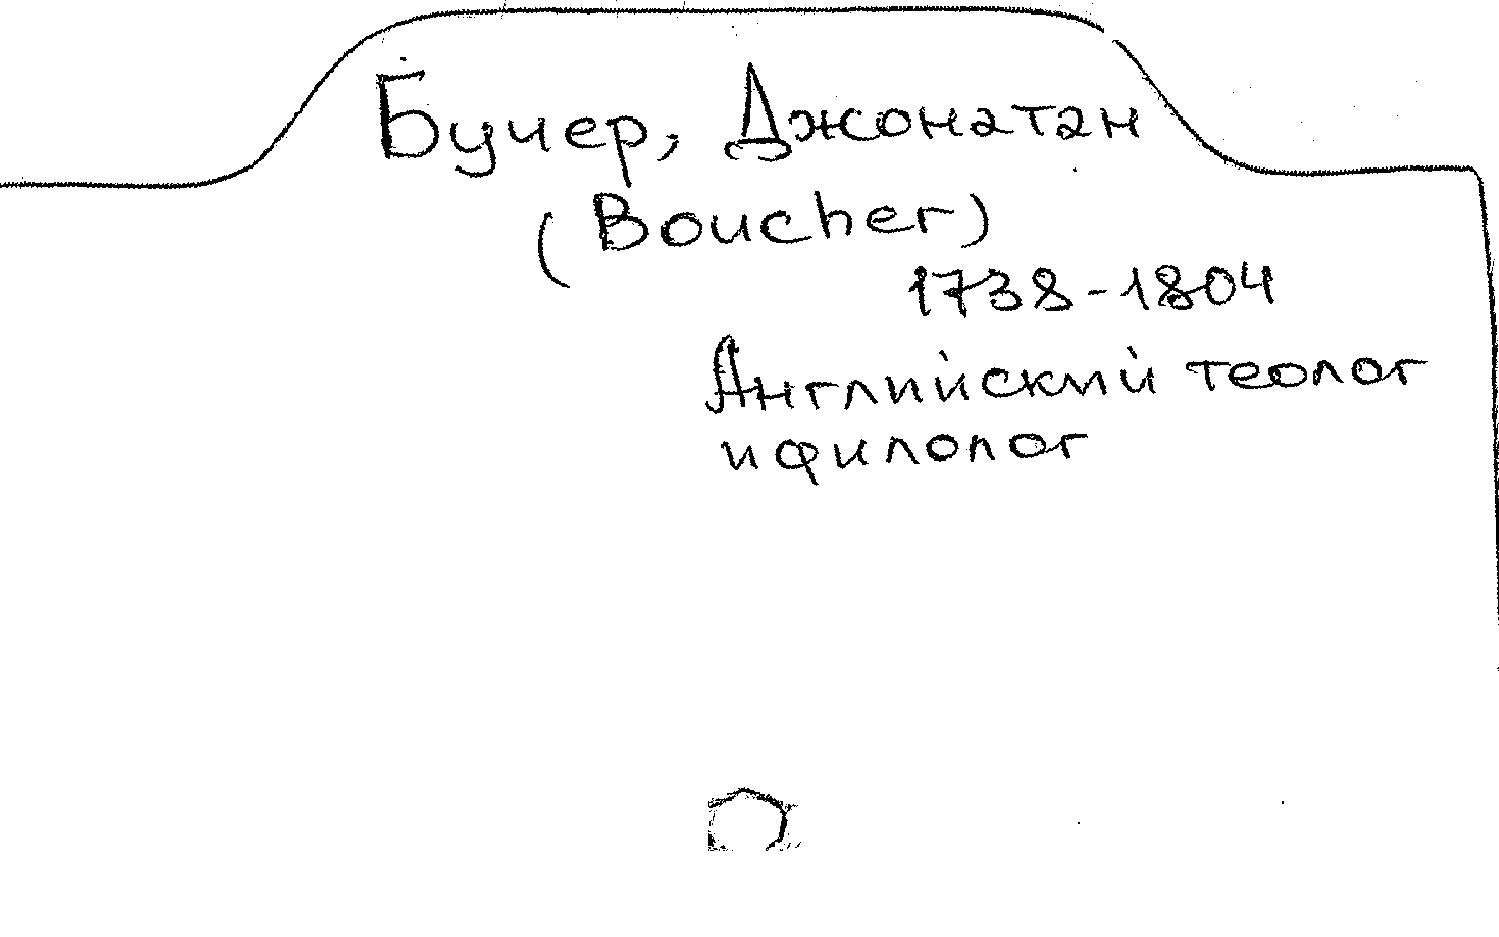 Бучер, Джонатан
(Boucher)
1738-1804
Английский теолог
и филолог